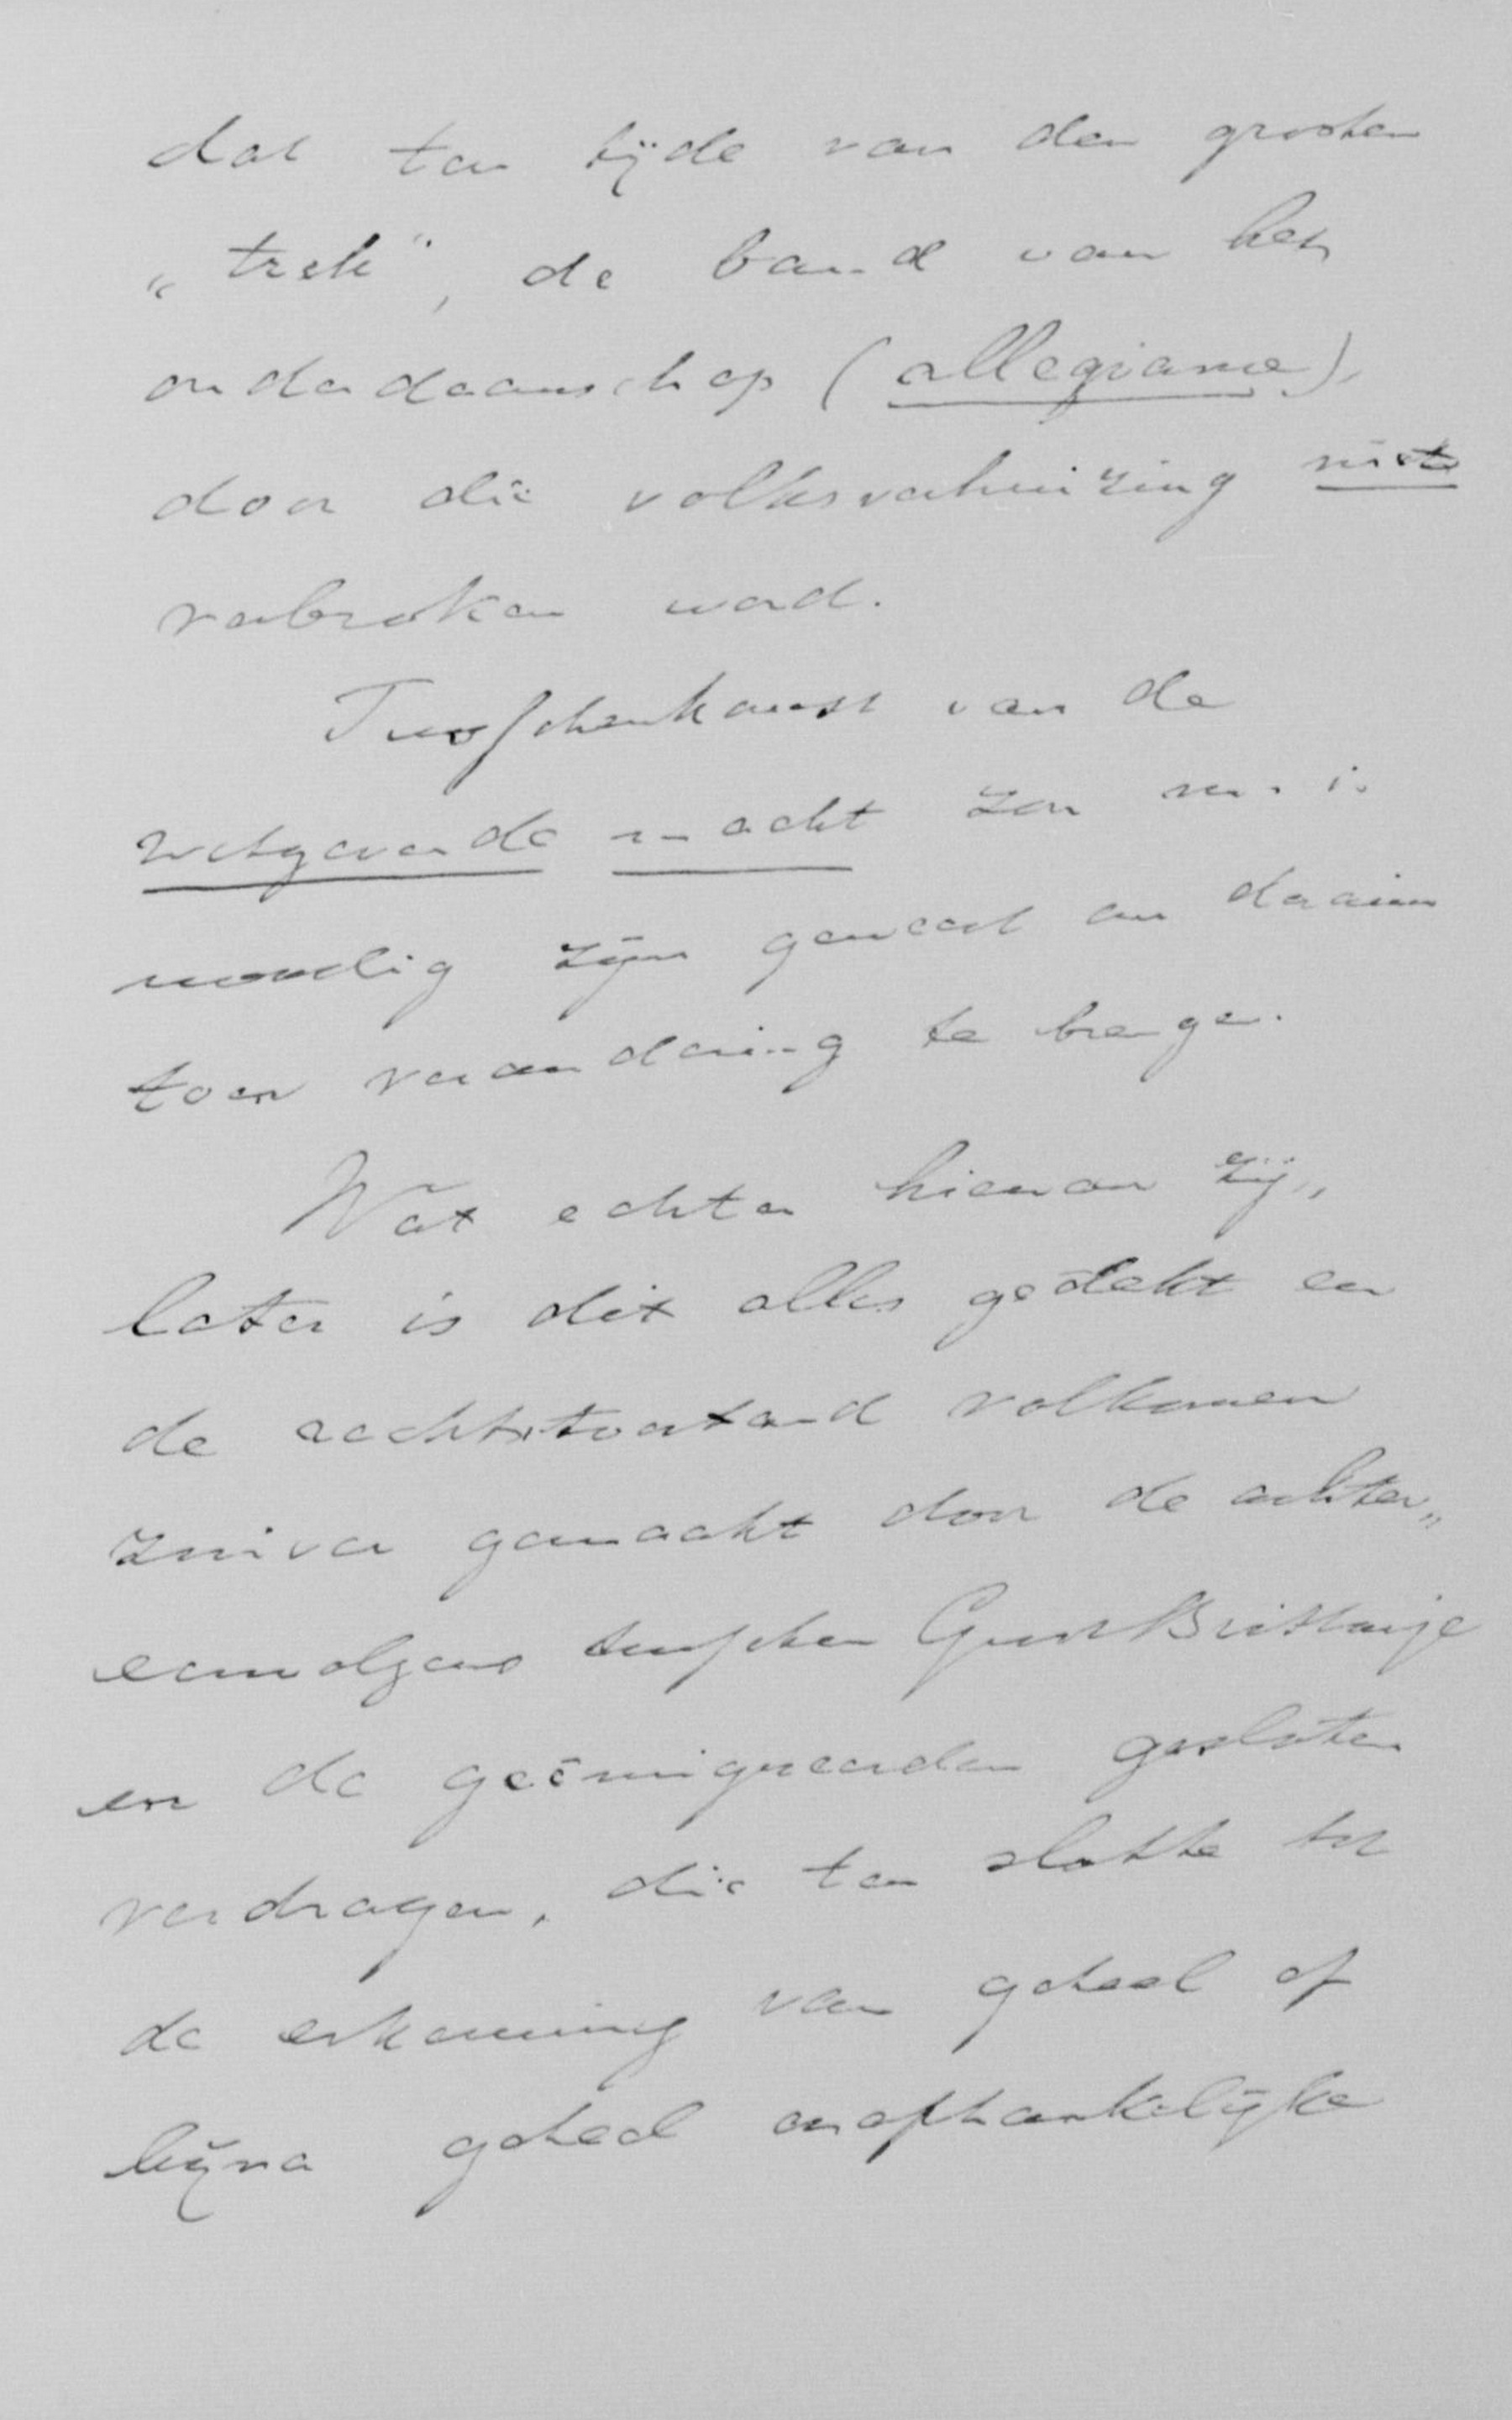 dat ten tijde van den grooten
„trek", de band van het
onderdaanschap (allegiance),
door die volksverhuizing niet
verbroken werd.
Tusschenkomst van de
wetgevende macht zou m. i.
noodig zijn geweest om daarin
toen verandering te brengen.
Wat echter hiervan zij,
later is dit alles gedekt en
de rechtstoestand volkomen
zuiver gemaakt door de achter„
eenvolgens tusschen Groot Brittanje
en de geëmigreerden gesloten
verdragen, die ten slotte tot
de erkenning van geheel of
bijna geheel onafhankelijke